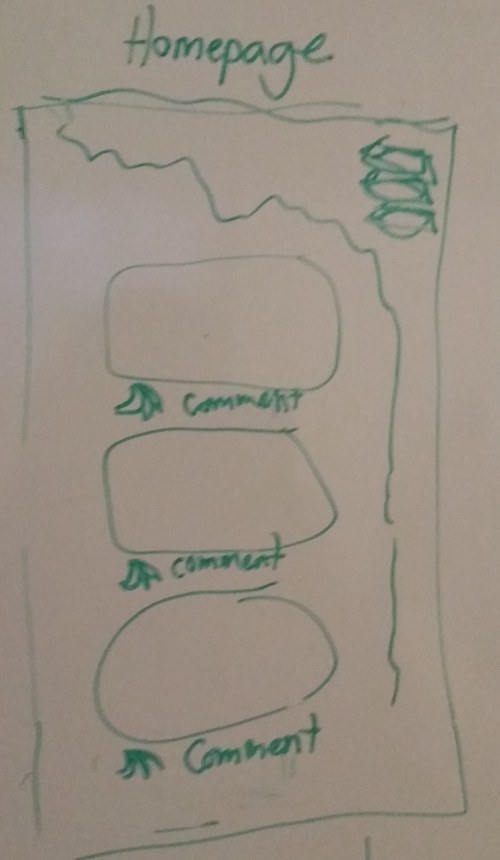 Homepage
comment
comment
Comment